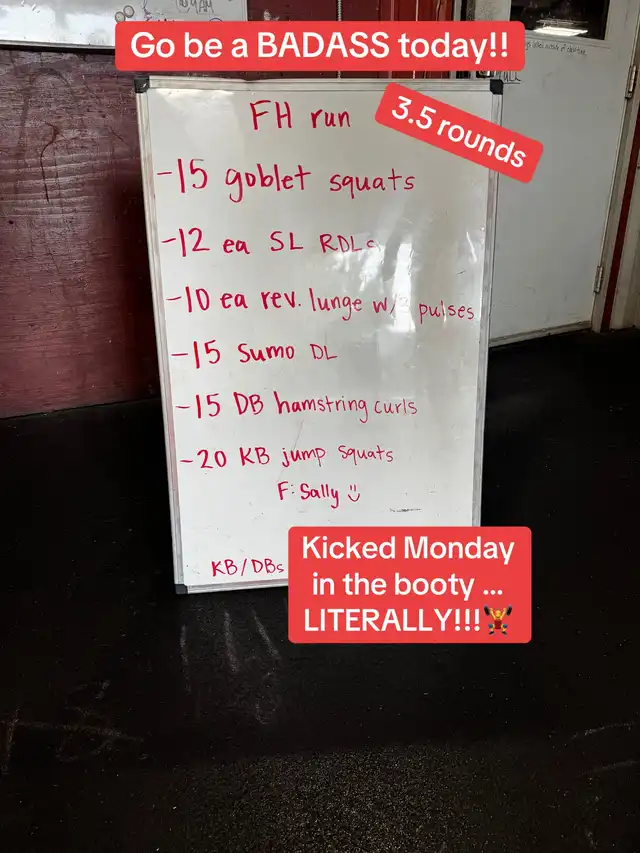 Go be a BADASS today!!
FH run
3.5 rounds
-15 goblet squats
-12 ea SL RDLs
-10 ea rev. lunge w/ pulses
-15 Sumo DL
-15 DB hamstring curls
-20 KB jump squats
F: Sally
KB/DBs
Kicked Monday
in the booty ...
LITERALLY!!!🏋️